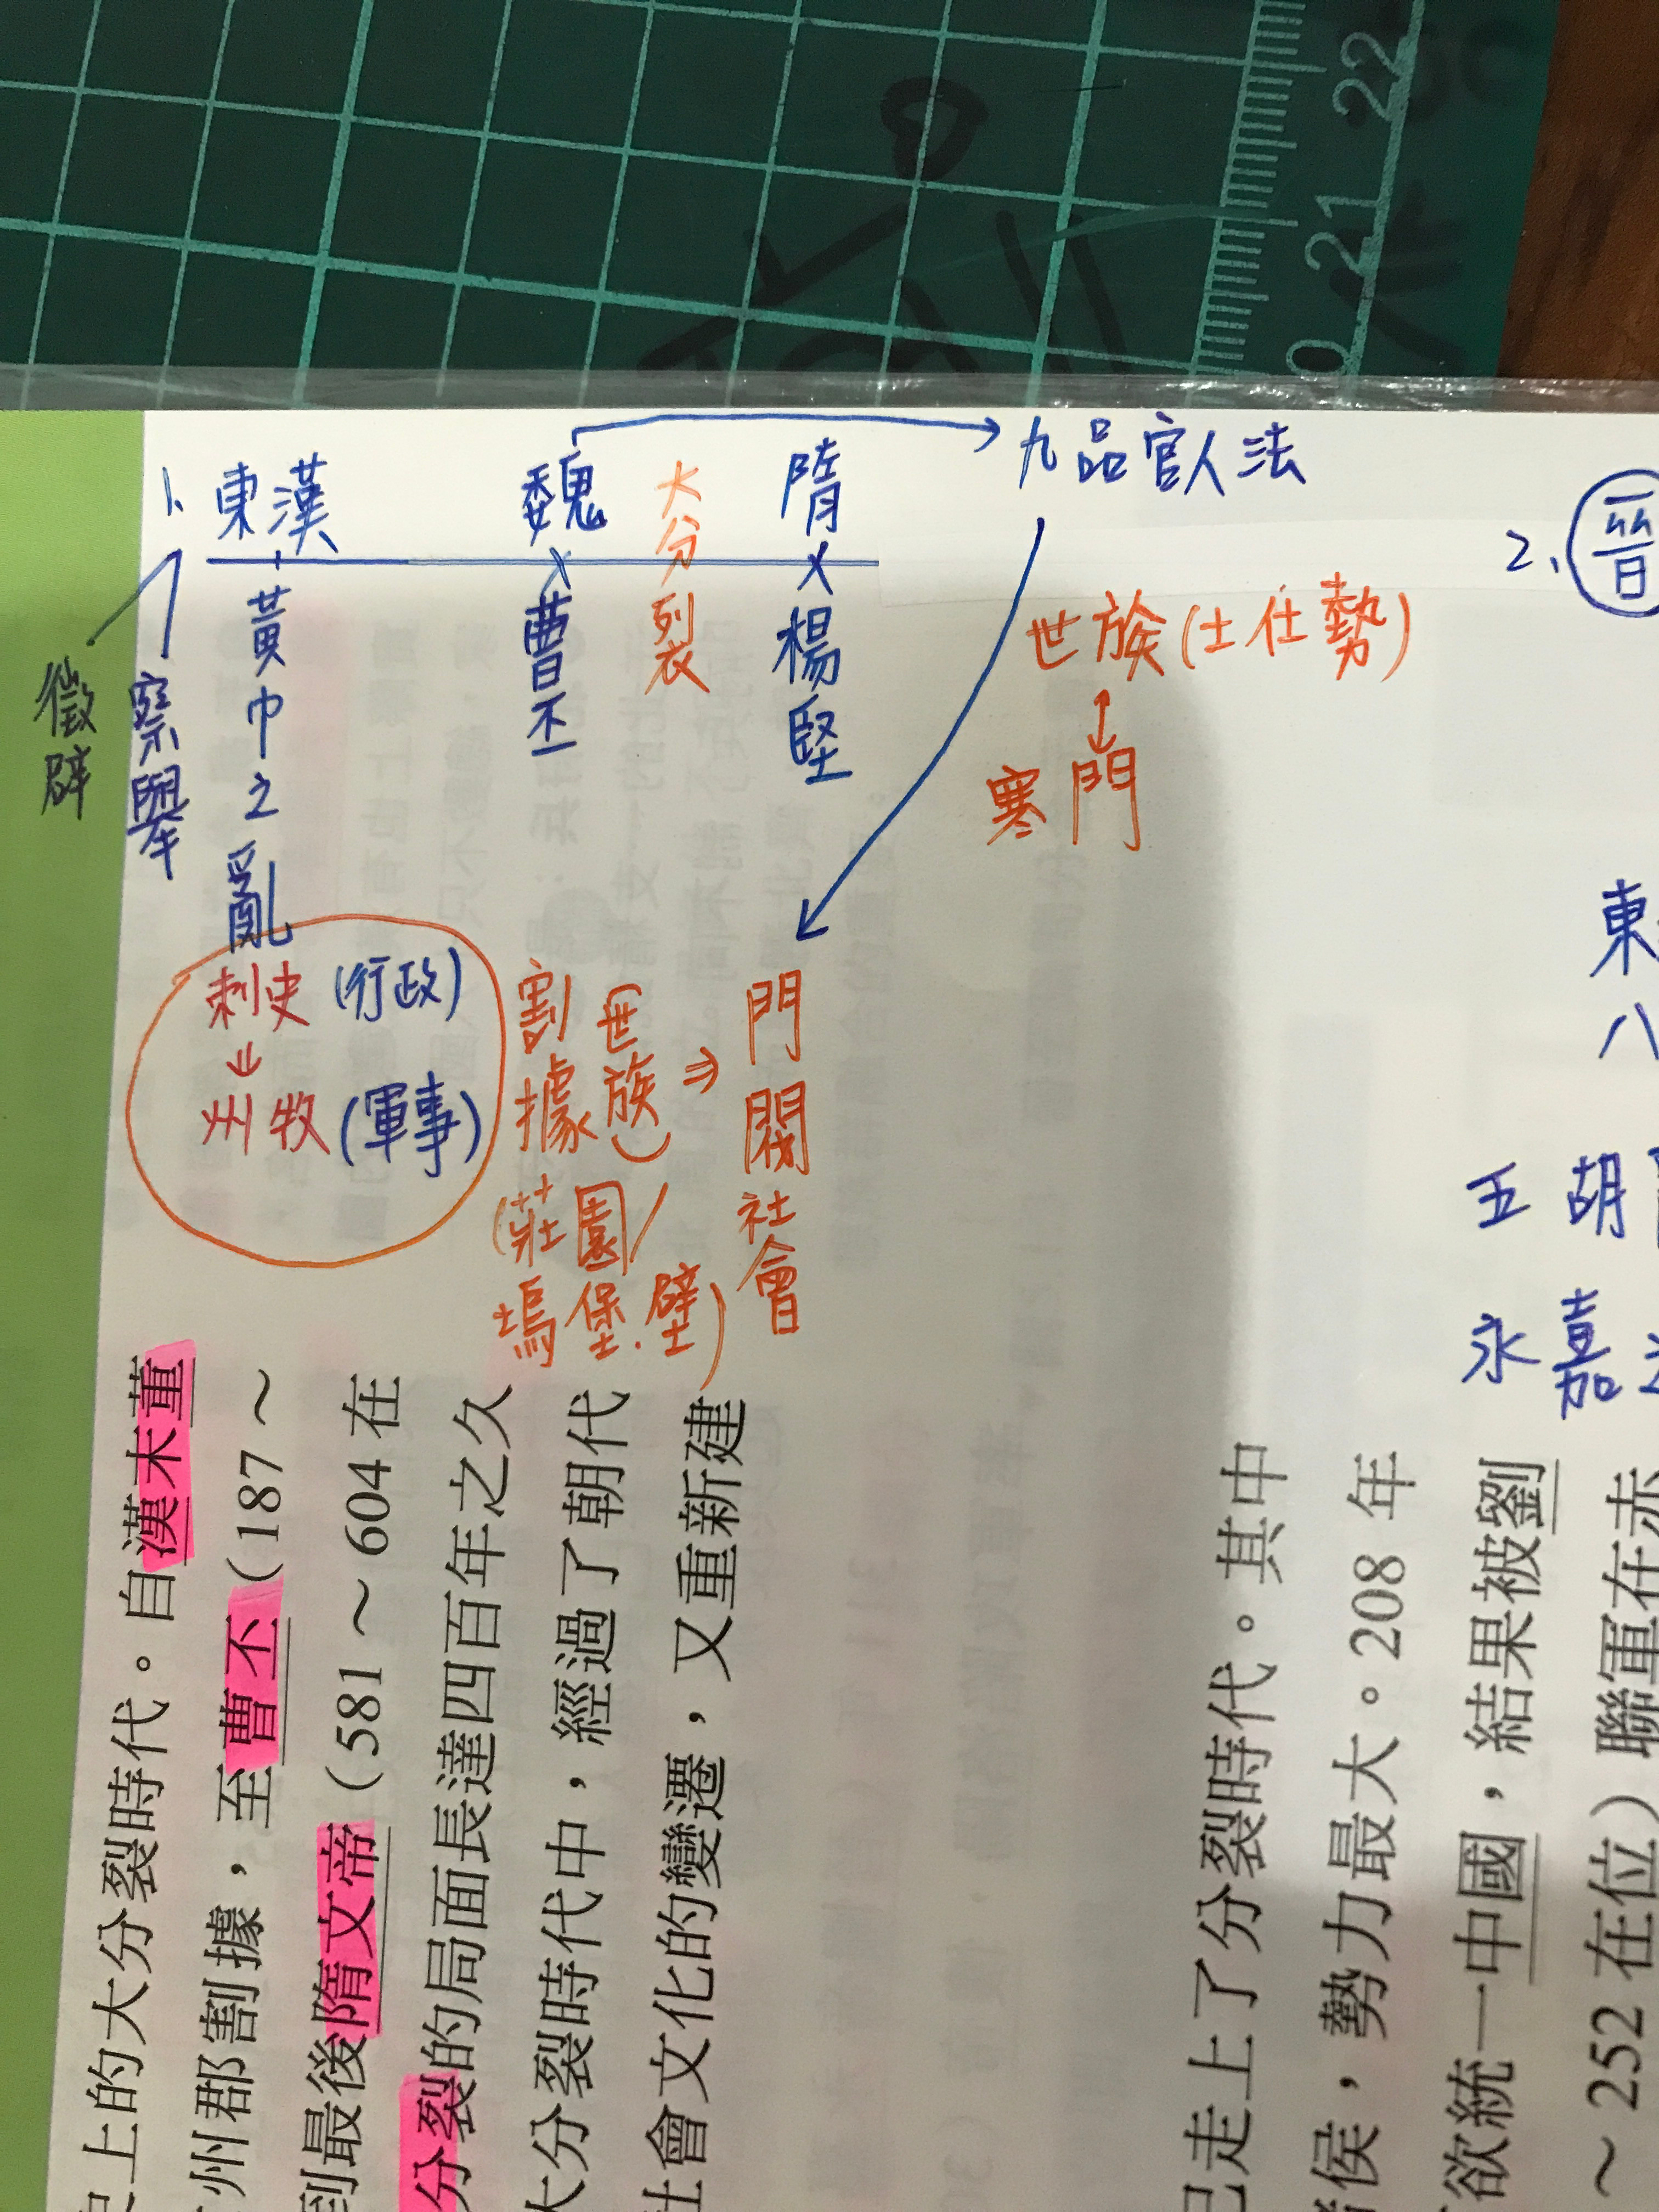 1. 東漢 魏 大分裂 隋 九品官人法
黃巾之亂
曹丕
楊堅
徵辟
察舉
世族(士仕勢)
↕
寒門
刺史(行政)
⇓
州牧(軍事)
割據世族(
(莊園/
塢堡.壁)
⇒
門閥社會
2. 晉
東
八
五胡
永嘉
史上的大分裂時代。自漢末董
州郡割據，至曹丕（187～
到最後隋文帝（581～604在
分裂的局面長達四百年之久
大分裂時代中，經過了朝代
社會文化的變遷，又重新建
已走上了分裂時代。其中
諸侯，勢力最大。208年
欲統一中國，結果被劉
～252在位）聯軍在赤
22
21